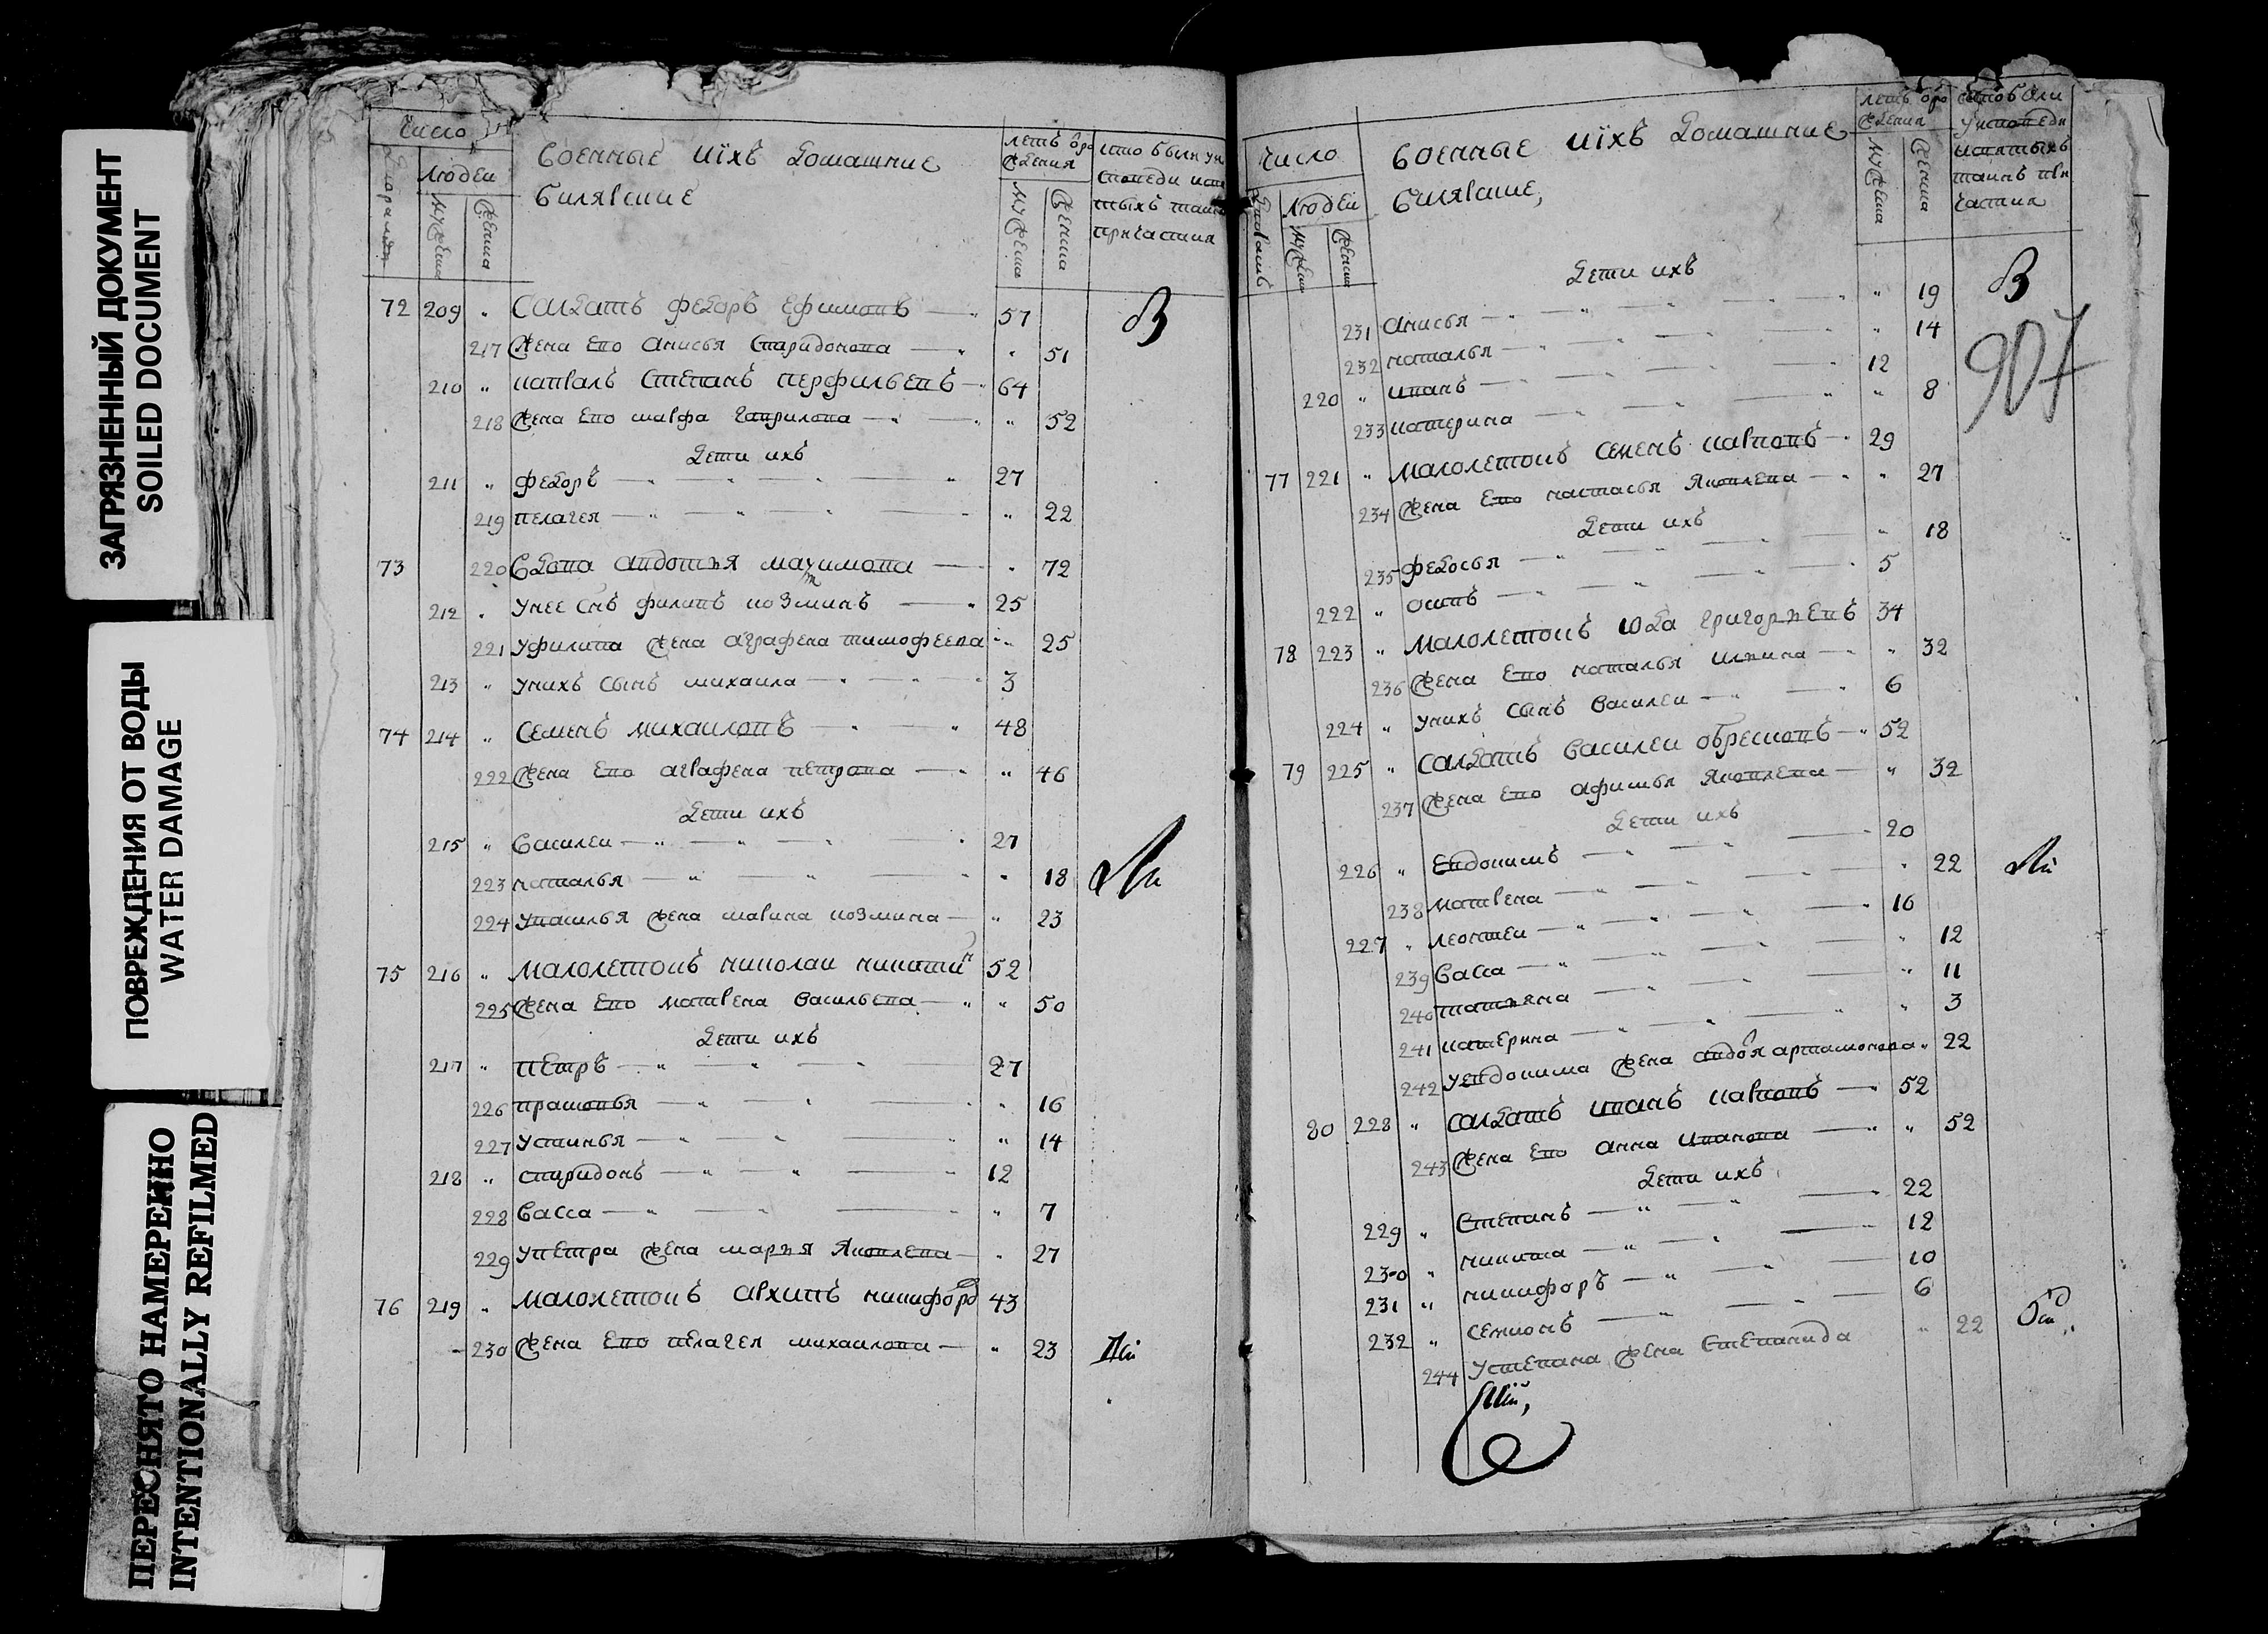 ЗАГРЯЗНЕННЫЙ ДОКУМЕНТ
SOILED DOCUMENT
ПОВРЕЖДЕНИЯ ОТ ВОДЫ
WATER DAMAGE
ПЕРЕСНЯТО НАМЕРЕННО
INTENTIONALLY REFILMED
Число
людеи
мужеска
женска
военные ихъ домашние
летъ оро
ждения
мужеска
женска
кто были уи
споведи
причастия
72 209 „ салдатъ федоръ ефимовъ 57
217 жена ево анисья спиридонова „ 51
210 „ капралъ степанъ перфильевъ 64
218 жена ево марфа гаврилова „ 52
дети ихъ
211 „ федоръ 27
219 пелагея „ 22
73 220 вдова авдотья максимова „ 72
212 „ унее снъ филипъ козминъ 25
221 уфилипа жена аграфена тимофеева „ 25
213 „ унихъ сынъ михаила 3
74 214 „ семенъ михаиловъ 48
222 жена ево аграфена петрова „ 46
дети ихъ
215 „ василеи 27
223 наталья „ 18
224 увасилья жена марина козмина „ 23
75 216 „ малолетокъ николаи никити 52
225 жена ево матрена васильева „ 50
дети ихъ
217 „ петръ 27
226 прасковья „ 16
227 устинья „ 14
218 „ спиридонъ 12
228 васса „ 7
229 упетра жена марья яковлева „ 27
76 219 „ малолетокъ архипъ никифоро 43
230 жена ево пелагея михаилова „ 23
Число
людеи
мужеска
женска
военные ихъ домашние
летъ оро
ждения
мужеска
женска
кто были
уисповеди
исвятыхъ
таинъ при
частия
дети ихъ
231 анисья „ 19
907
232 наталья „ 14
220 „ иванъ 12
233 катерина „ 8
77 221 „ малолетокъ семенъ карповъ 29
234 жена ево настасья яковлева „ 27
дети ихъ
235 федосья „ 18
222 „ осипъ 5
78 223 „ малолетокъ юда григорьевъ 34
236 жена ево наталья ильина „ 32
224 „ унихъ сынъ василеи 6
79 225 „ салдатъ василеи обрескопъ 52
237 жена ево афимья яковлева „ 32
дети ихъ
226 „ евдокимъ 20
238 матрена „ 22
227 „ леонтеи 16
239 васса „ 12
240 татьяна „ 11
241 катерина „ 3
242 уевдокима жена авдоя артамонова „ 22
80 228 „ салдатъ иванъ карповъ 52
243 жена ево анна иванова „ 52
дети ихъ
229 „ степанъ 22
230 „ никита 12
231 „ никифоръ 10
232 „ семионъ 6
244 устепана жена степанида „ 22